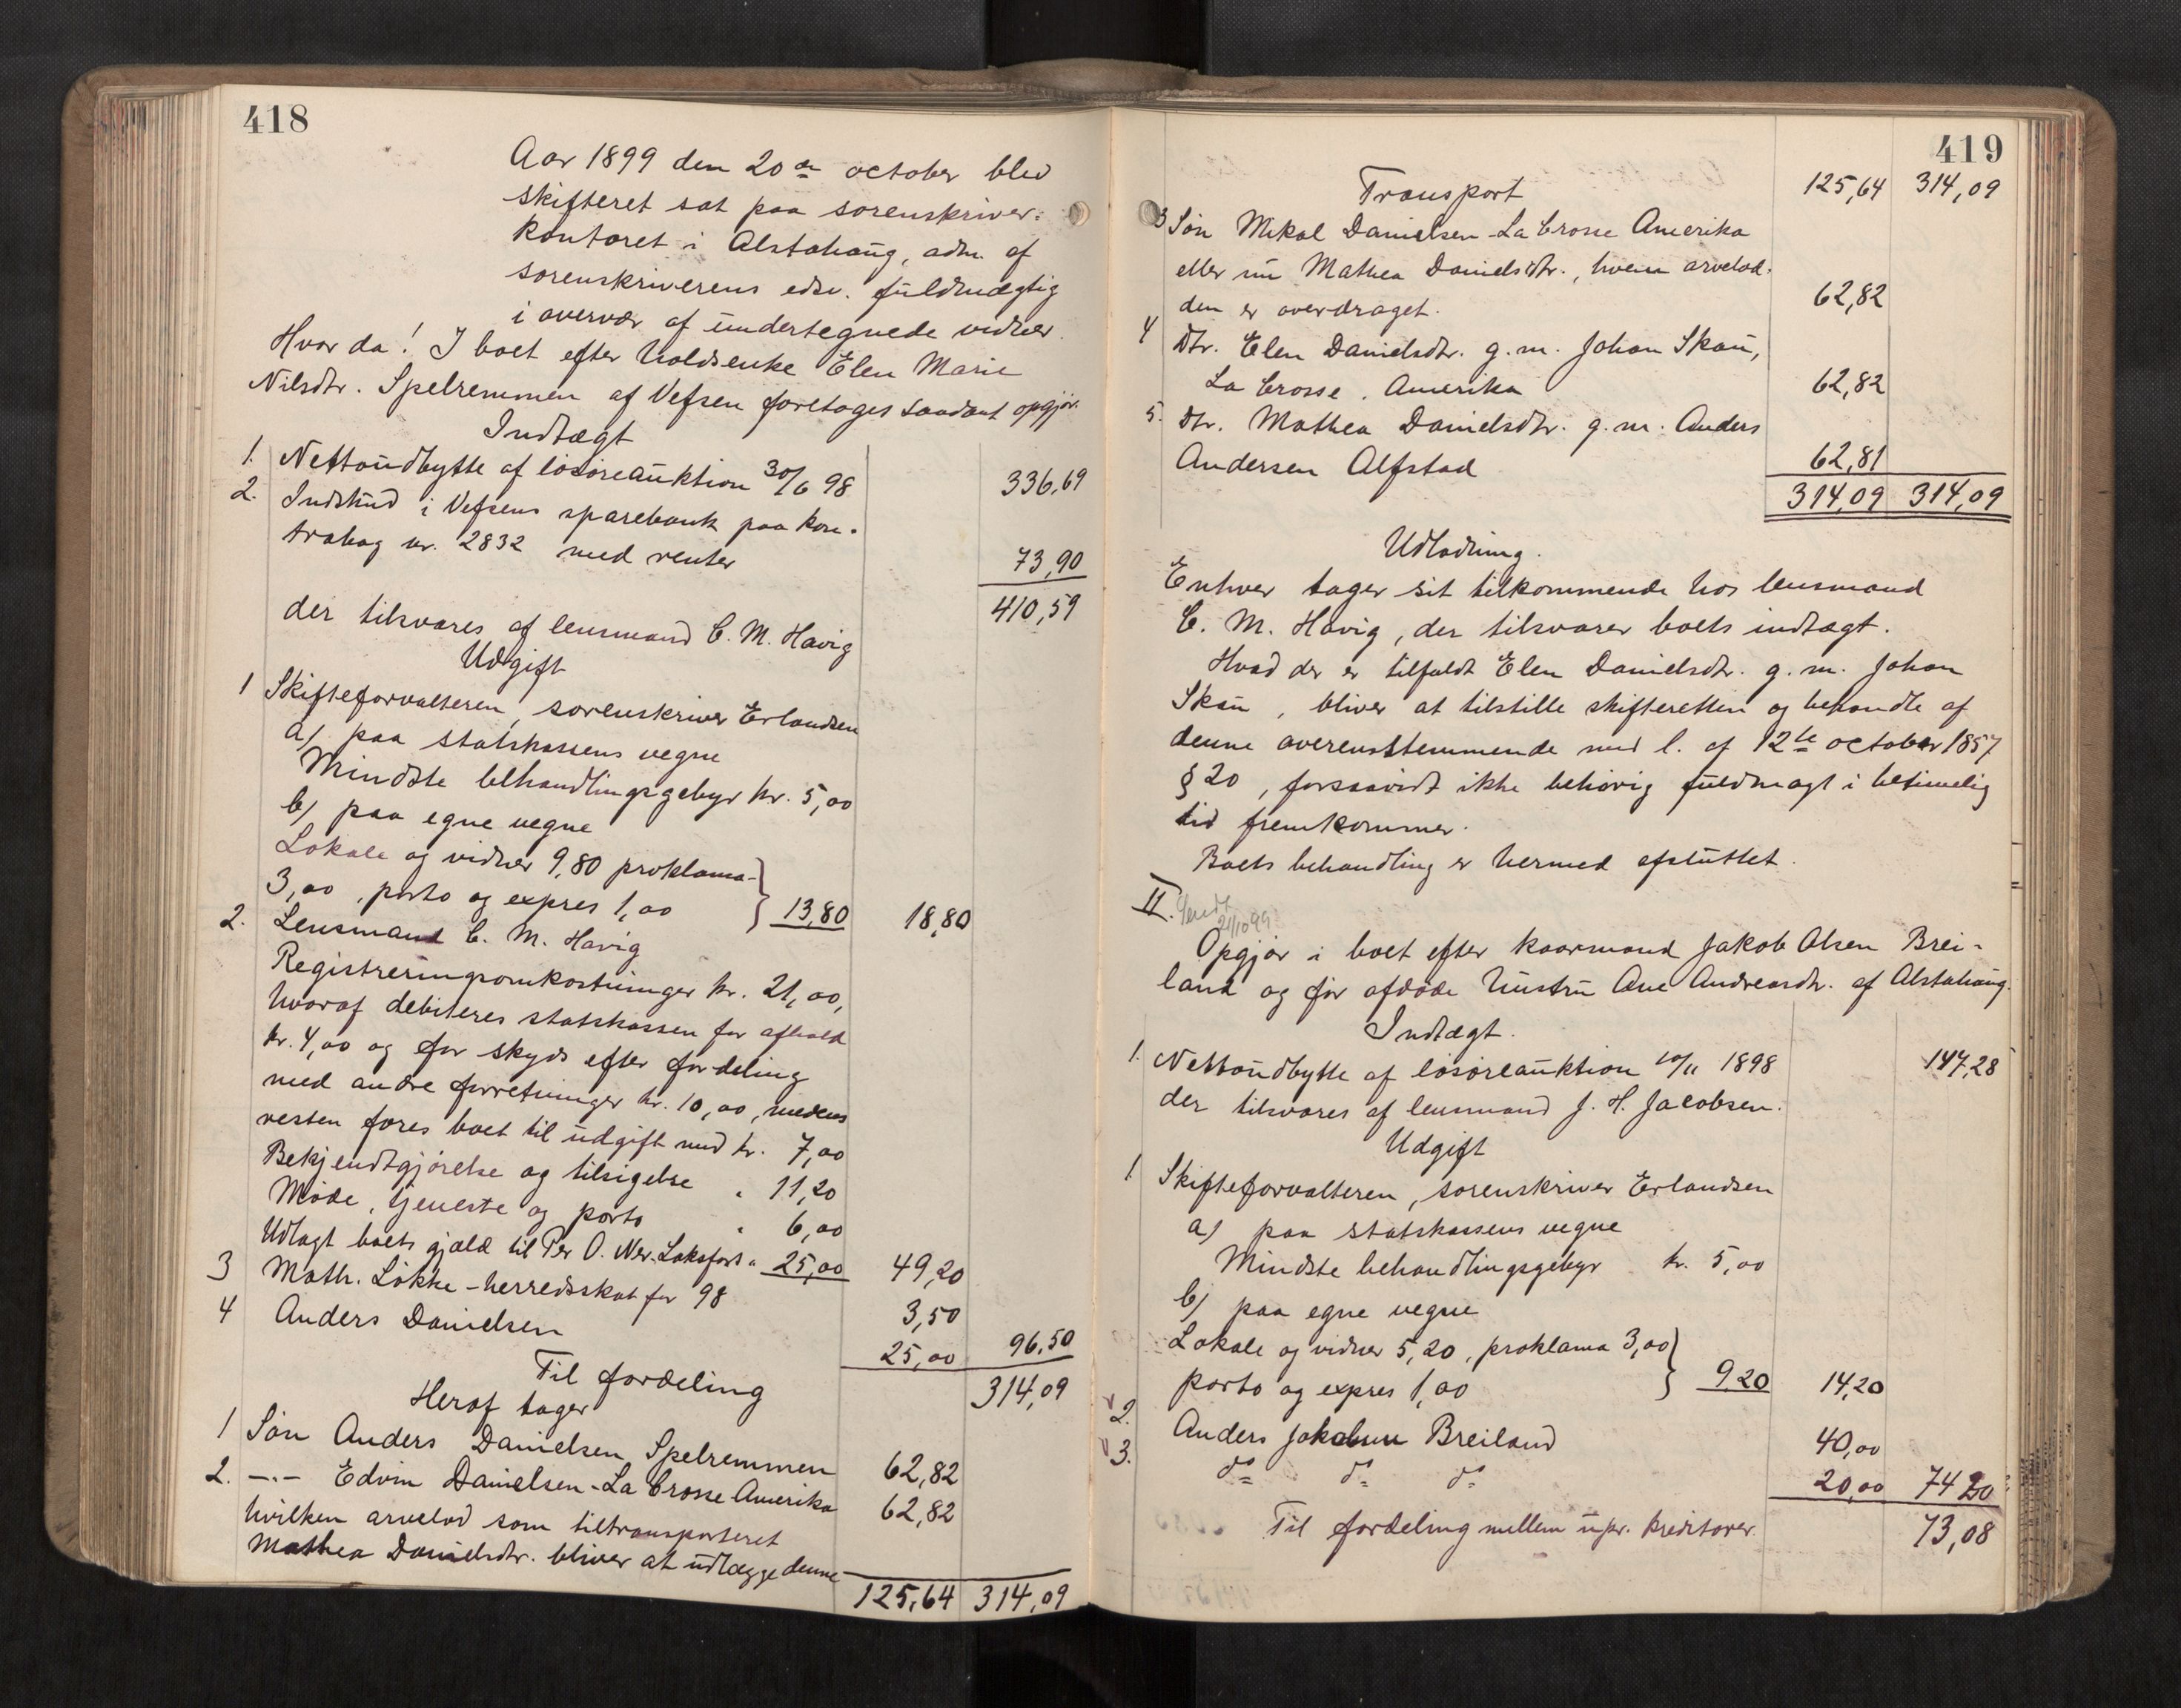 418
Aar 1899 den 20de october blev
skifteret sat paa sorenskriver-
kontoret i Alstahaug, adm. af
sorenskriverens edsv. fuldmægtig
i overvær af undertegnede vidner.
Hvor da! I boet efter Holdsenke Elen Marie
Nilsdtr. Spelremmen af Vefsen foretoges saadant opgjør.
Indtægt
1. Nettoudbytte af løsøreauktion 30/6 98 336,69
2. Indskud i Vefsens sparebank paa kon-
trabog nr. 2832 med renter 73,90
410,59
der tilsvares af lensmand C. M. Havig
Udgift
1 Skifteforvalteren, sorenskriver Erlandsen
a) paa statskassens vegne
Mindste behandlingsgebyr kr. 5,00
b) paa egne vegne
Lokale og vidner 9,80 proklama-
3,00, porto og expres 1,00 } 13,80 18,80
2. Lensmand C. M. Havig
Registreringsomkostninger kr. 21,00,
hvoraf debiteres statskassen for afhold
kr. 4,00 og for skyds efter fordeling
med andre forretninger kr. 10,00, medens
resten føres boet til udgift med kr. 7,00
Bekjendtgjørelse og tilsigelse " 11,20
Møde, tjeneste og porto " 6,00
Udlagt boets gjæld til Per O. Ner-Laksfors " 25,00 49,20
3 Math. Løkke - herredsskat for 98 3,50
4 Anders Danielsen 25,00 96,50
Til fordeling 314,09
Heraf tager
1 Søn Anders Danielsen Spelremmen 62,82
2. -"- Edvin Danielsen - La Crosse Amerika 62,82
hvilken arvelod som tiltransporteret
Mathea Danielsdtr. bliver at udlægge denne
125,64 314,09
419
Transport 125,64 314,09
3 Søn Mikal Danielsen - La Crosse Amerika
eller nu Mathea Danielsdtr., hvem arvelod-
den er overdraget. 62,82
4 Dtr. Elen Danielsdtr. g. m. Johan Skau,
La Crosse, Amerika 62,82
5. Dtr. Mathea Danielsdtr. g. m. Anders
Andersen Alfstad 62,81
314,09 314,09
Udlodning.
Enhver tager sit tilkommende hos lensmand
C. M. Havig, der tilsvarer boets indtægt.
Hvad der er tilfaldt Elen Danielsdtr. g. m. Johan
Skau, bliver at tilstille skifteretten og behandle af
denne overensstemmende med l. af 12te october 1857
§ 20, forsaavidt ikke behørig fuldmagt i betimelig
tid fremkommer.
Boets behandling er hermed afsluttet.
II. Sendt
21/10 99
Opgjør i boet efter kaarmand Jakob Olsen Brei-
land og før afdøde hustru Ane Andreasdtr. af Alstahaug.
Indtægt.
1. Nettoudbytte af løsøreauktion 10/11 1898 147,28
der tilsvares af lensmand J. H. Jacobsen.
Udgift
1 Skifteforvalteren, sorenskriver Erlandsen
a) paa statskassens vegne
Mindste behandlingsgebyr kr. 5,00
b) paa egne vegne
Lokale og vidner 5,20, proklama 3,00
porto og expres 1,00 } 9,20 14,20
2. Anders Jakobsen Breiland 40,00
3. do do do 20,00 74 20
Til fordeling mellem upr. kreditorer. 73,08